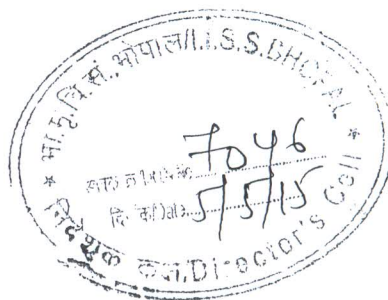 भा.मृ.वि.सं.,भोपाल/I.I.S.S.BHOPAL
7046
दिनांक/Date 5/5/15
* निदेशक कक्ष/Director's Cell *